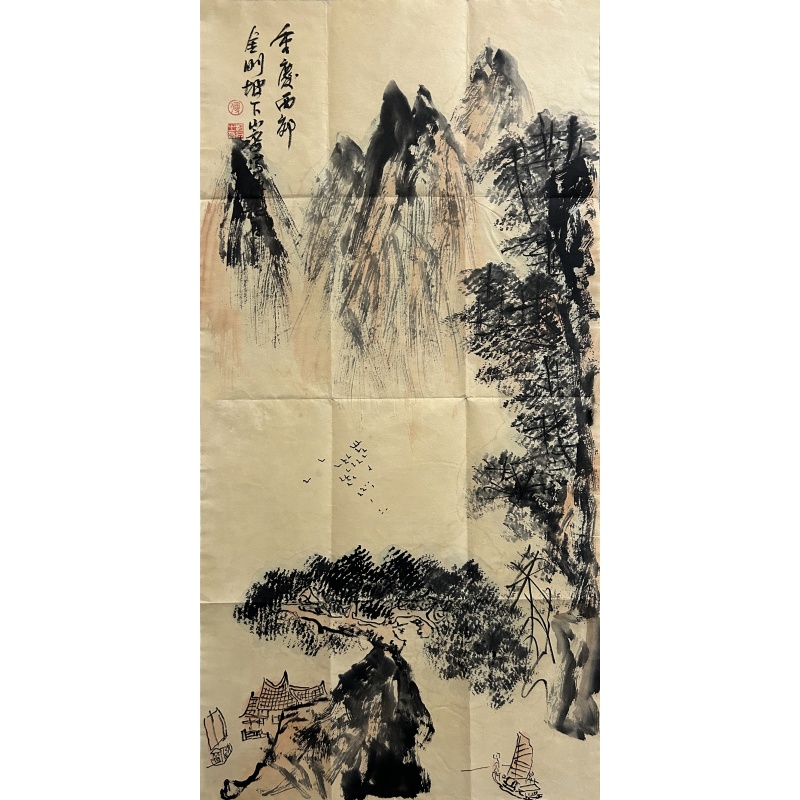 重慶西部
金剛坡下山齋寫